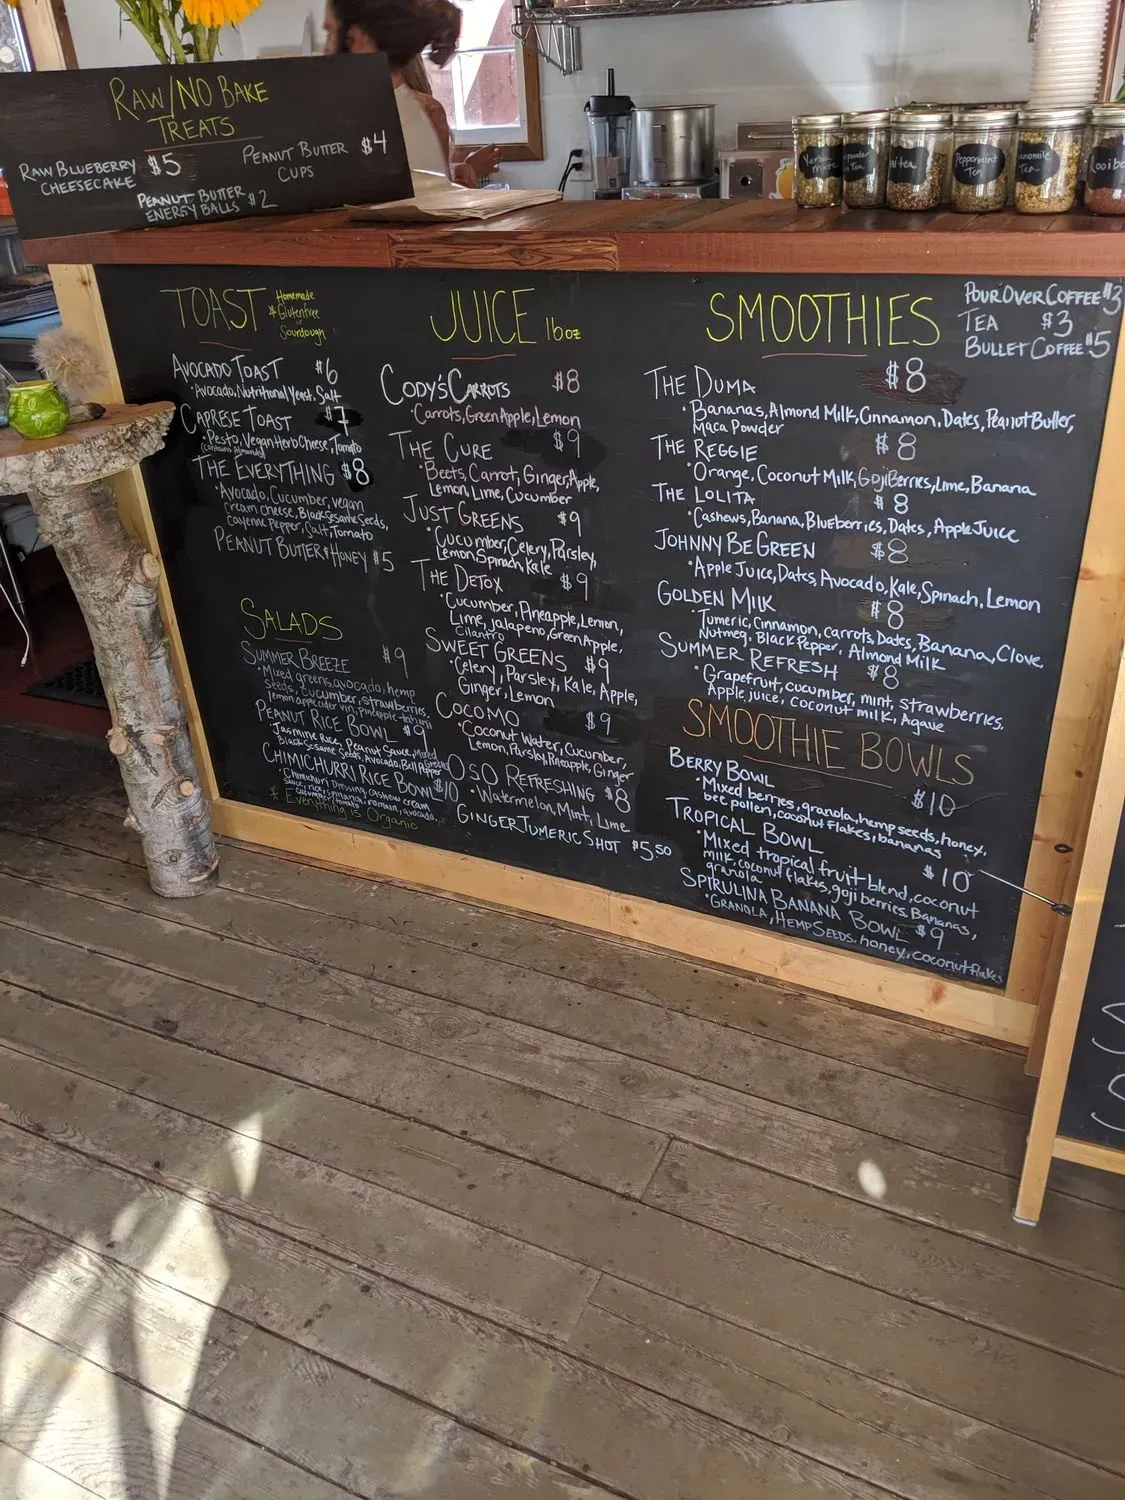 RAW/NO BAKE
TREATS
RAW BLUEBERRY
CHEESECAKE $5
PEANUT BUTTER
CUPS $4
PEANUT BUTTER
ENERGY BALLS $2
Peppermint
Tea
TOAST
* Homemade
Glutenfree
or
Sourdough
AVOCADO TOAST $6
• Avocado, Nutritional Yeast, Salt
CAPRESE TOAST $7
• Pesto, Vegan Herb Cheese, Tomato
(contains Almonds)
THE EVERYTHING $8
• Avocado, Cucumber, vegan
cream cheese, Black Sesame Seeds,
cayenne Pepper, Salt, Tomato
PEANUT BUTTER & HONEY $5
SALADS
SUMMER BREEZE $9
• Mixed greens, avocado, hemp
seeds, cucumber, strawberries,
PEANUT RICE BOWL $9
Jasmine Rice, Peanut Sauce, Mixed
Black Sesame Seeds, Avocado, Bell Pepper
CHIMICHURRI RICE BOWL $10
• Chimichurri Dressing, cashew cream
spinach, romain, avocado,
* Everything is Organic
JUICE 16oz
CODY'S CARROTS $8
• Carrots, Green Apple, Lemon
THE CURE $9
• Beets, Carrot, Ginger, Apple,
Lemon, Lime, Cucumber
JUST GREENS $9
• Cucumber, Celery, Parsley,
Lemon, Spinach, Kale
THE DETOX $9
• Cucumber, Pineapple, Lemon,
Lime, jalapeno, Green Apple,
Cilantro
SWEET GREENS $9
• Celery, Parsley, Kale, Apple,
Ginger, Lemon
COCOMO $9
• Coconut Water, Cucumber,
Lemon, Parsley, Pineapple, Ginger
OSO REFRESHING $8
• Watermelon, Mint, Lime
GINGER TUMERIC SHOT $5.50
SMOOTHIES
THE DUMA $8
• Bananas, Almond Milk, Cinnamon, Dates, Peanut Butter,
Maca Powder
THE REGGIE $8
• Orange, Coconut Milk, Goji Berries, Lime, Banana
THE LOLITA $8
• Cashews, Banana, Blueberries, Dates, Apple Juice
JOHNNY BE GREEN $8
• Apple Juice, Dates, Avocado, Kale, Spinach, Lemon
GOLDEN MILK $8
Tumeric, Cinnamon, carrots, Dates, Banana, Clove,
Nutmeg, Black Pepper, Almond Milk
SUMMER REFRESH $8
• Grapefruit, cucumber, mint, strawberries,
Apple juice, coconut milk, Agave
SMOOTHIE BOWLS
BERRY BOWL $10
• Mixed berries, granola, hemp seeds, honey,
bee pollen, coconut flakes, bananas
TROPICAL BOWL $10
• Mixed tropical fruit blend, coconut
milk, coconut flakes, goji berries, Bananas,
granola
SPIRULINA BANANA BOWL $9
• GRANOLA, HEMP SEEDS, honey, coconut flakes
POUR OVER COFFEE $3
TEA $3
BULLET COFFEE $5